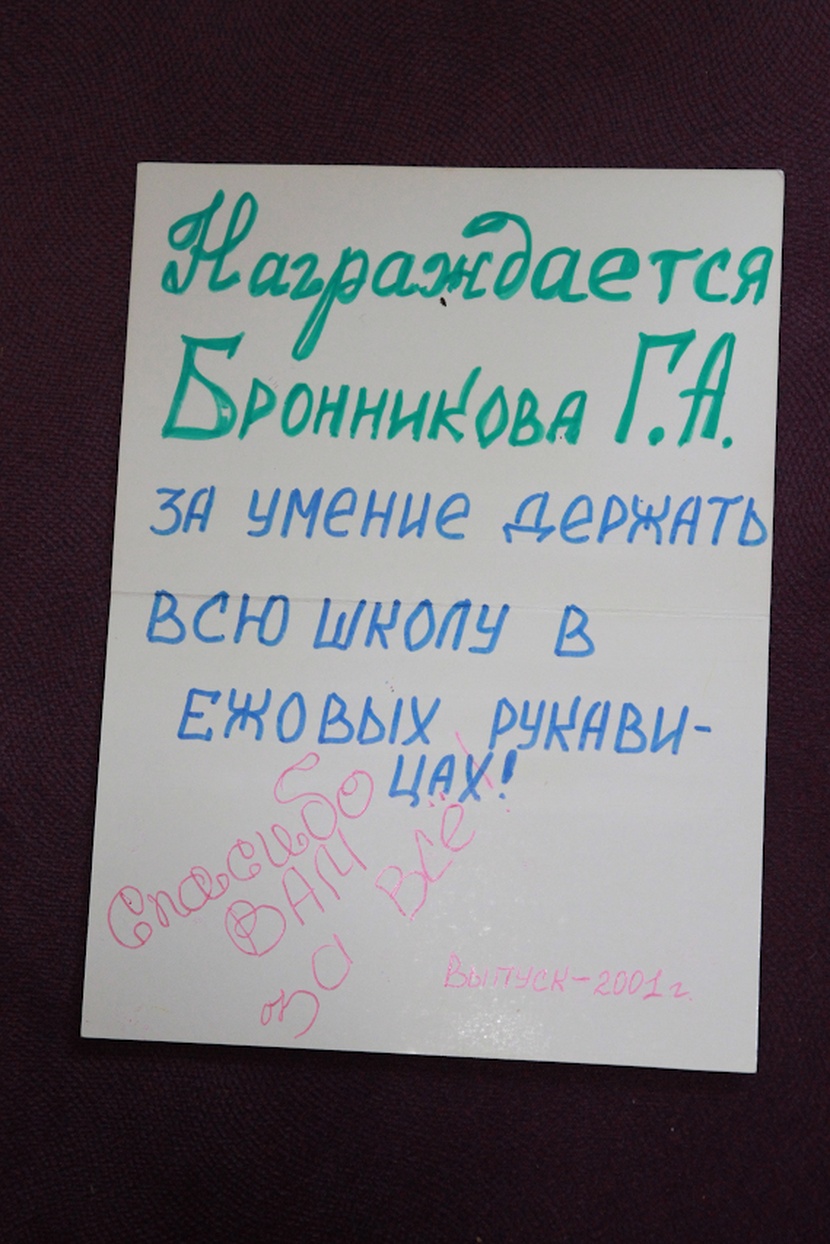 Награждается
Бронникова Г.А.
за умение держать
всю школу в
ежовых рукави-
цах!
Спасибо
Вам
за всё!
Выпуск-2001 г.